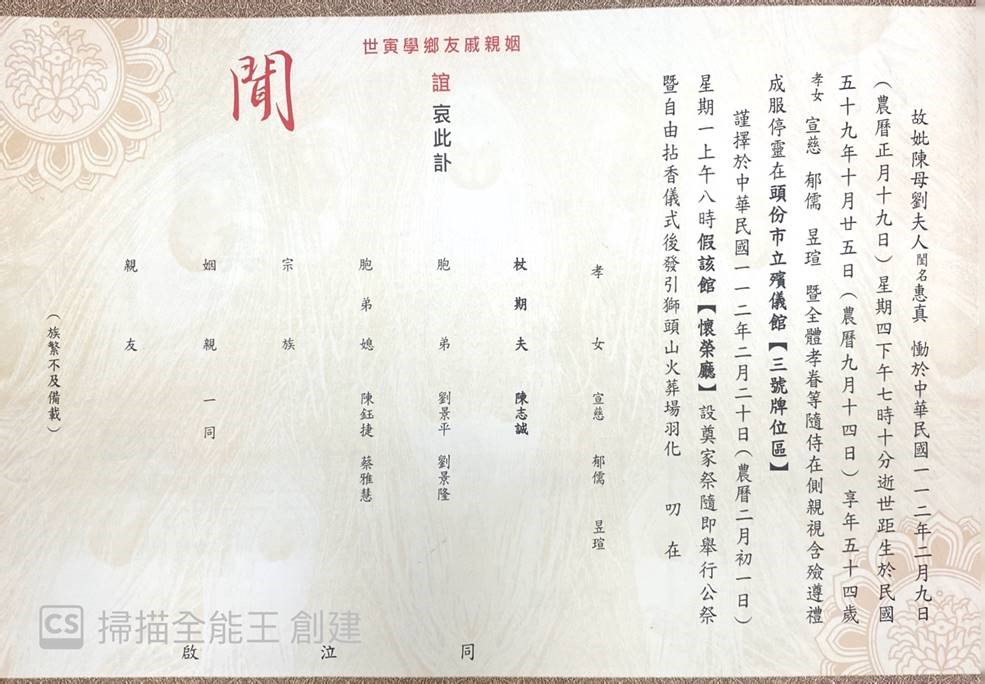 故妣陳母劉夫人閨名惠真　慟於中華民國一一二年二月九日
（農曆正月十九日）星期四下午七時十分逝世距生於民國
五十九年十月廿五日（農曆九月十四日）享年五十四歲
孝女　宣慈　郁儒　昱瑄　暨全體孝眷等隨侍在側親視含殮遵禮
成服停靈在頭份市立殯儀館【三號牌位區】
謹擇於中華民國一一二年二月二十日（農曆二月初一日）
星期一上午八時假該館【懷榮廳】設奠家祭隨即舉行公祭
暨自由拈香儀式後發引獅頭山火葬場羽化　叨在
姻親戚友鄉學寅世
誼　哀此訃
聞
孝女　宣慈　郁儒　昱瑄
杖期夫　陳志誠
胞弟　劉景平　劉景隆
胞弟媳　陳鈺捷　蔡雅慧
宗族
姻親　一同
親友
（族繁不及備載）
同泣啟
CS 掃描全能王 創建